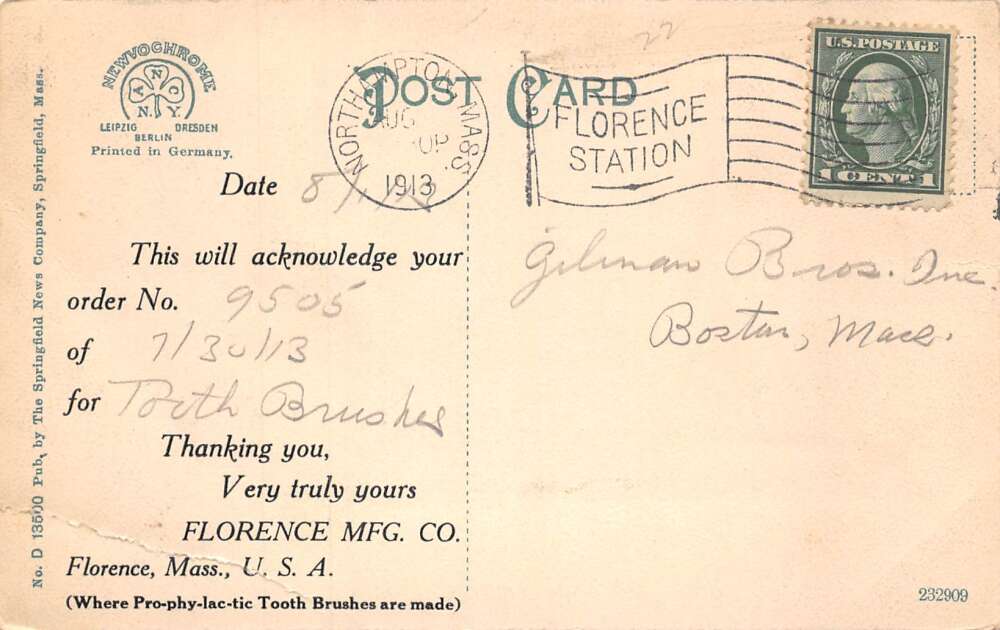 NEWVOCHROME
A N C
N. Y.
LEIPZIG DRESDEN
BERLIN
Printed in Germany.
POST CARD
NORTHAMPTON, MASS.
AUG
1913
FLORENCE
STATION
U.S. POSTAGE
1 CENT 1
Date 8/1/13
This will acknowledge your
order No. 9505
of 7/30/13
for Tooth Brushes
Thanking you,
Very truly yours
FLORENCE MFG. CO.
Florence, Mass., U. S. A.
(Where Pro-phy-lac-tic Tooth Brushes are made)
Gilman Bros. Inc.
Boston, Mass.
No. D 13500 Pub. by The Springfield News Company, Springfield, Mass.
232909